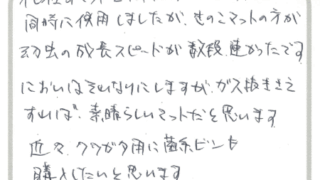 同時に使用しましたが、きのこマットの方が
幼虫の成長スピードが数段速かったです
においはそれなりにしますが、ガス抜きさえ
すれば、素晴らしいマットだと思います
近々、クワガタ用に菌糸ビンも
購入したいと思います